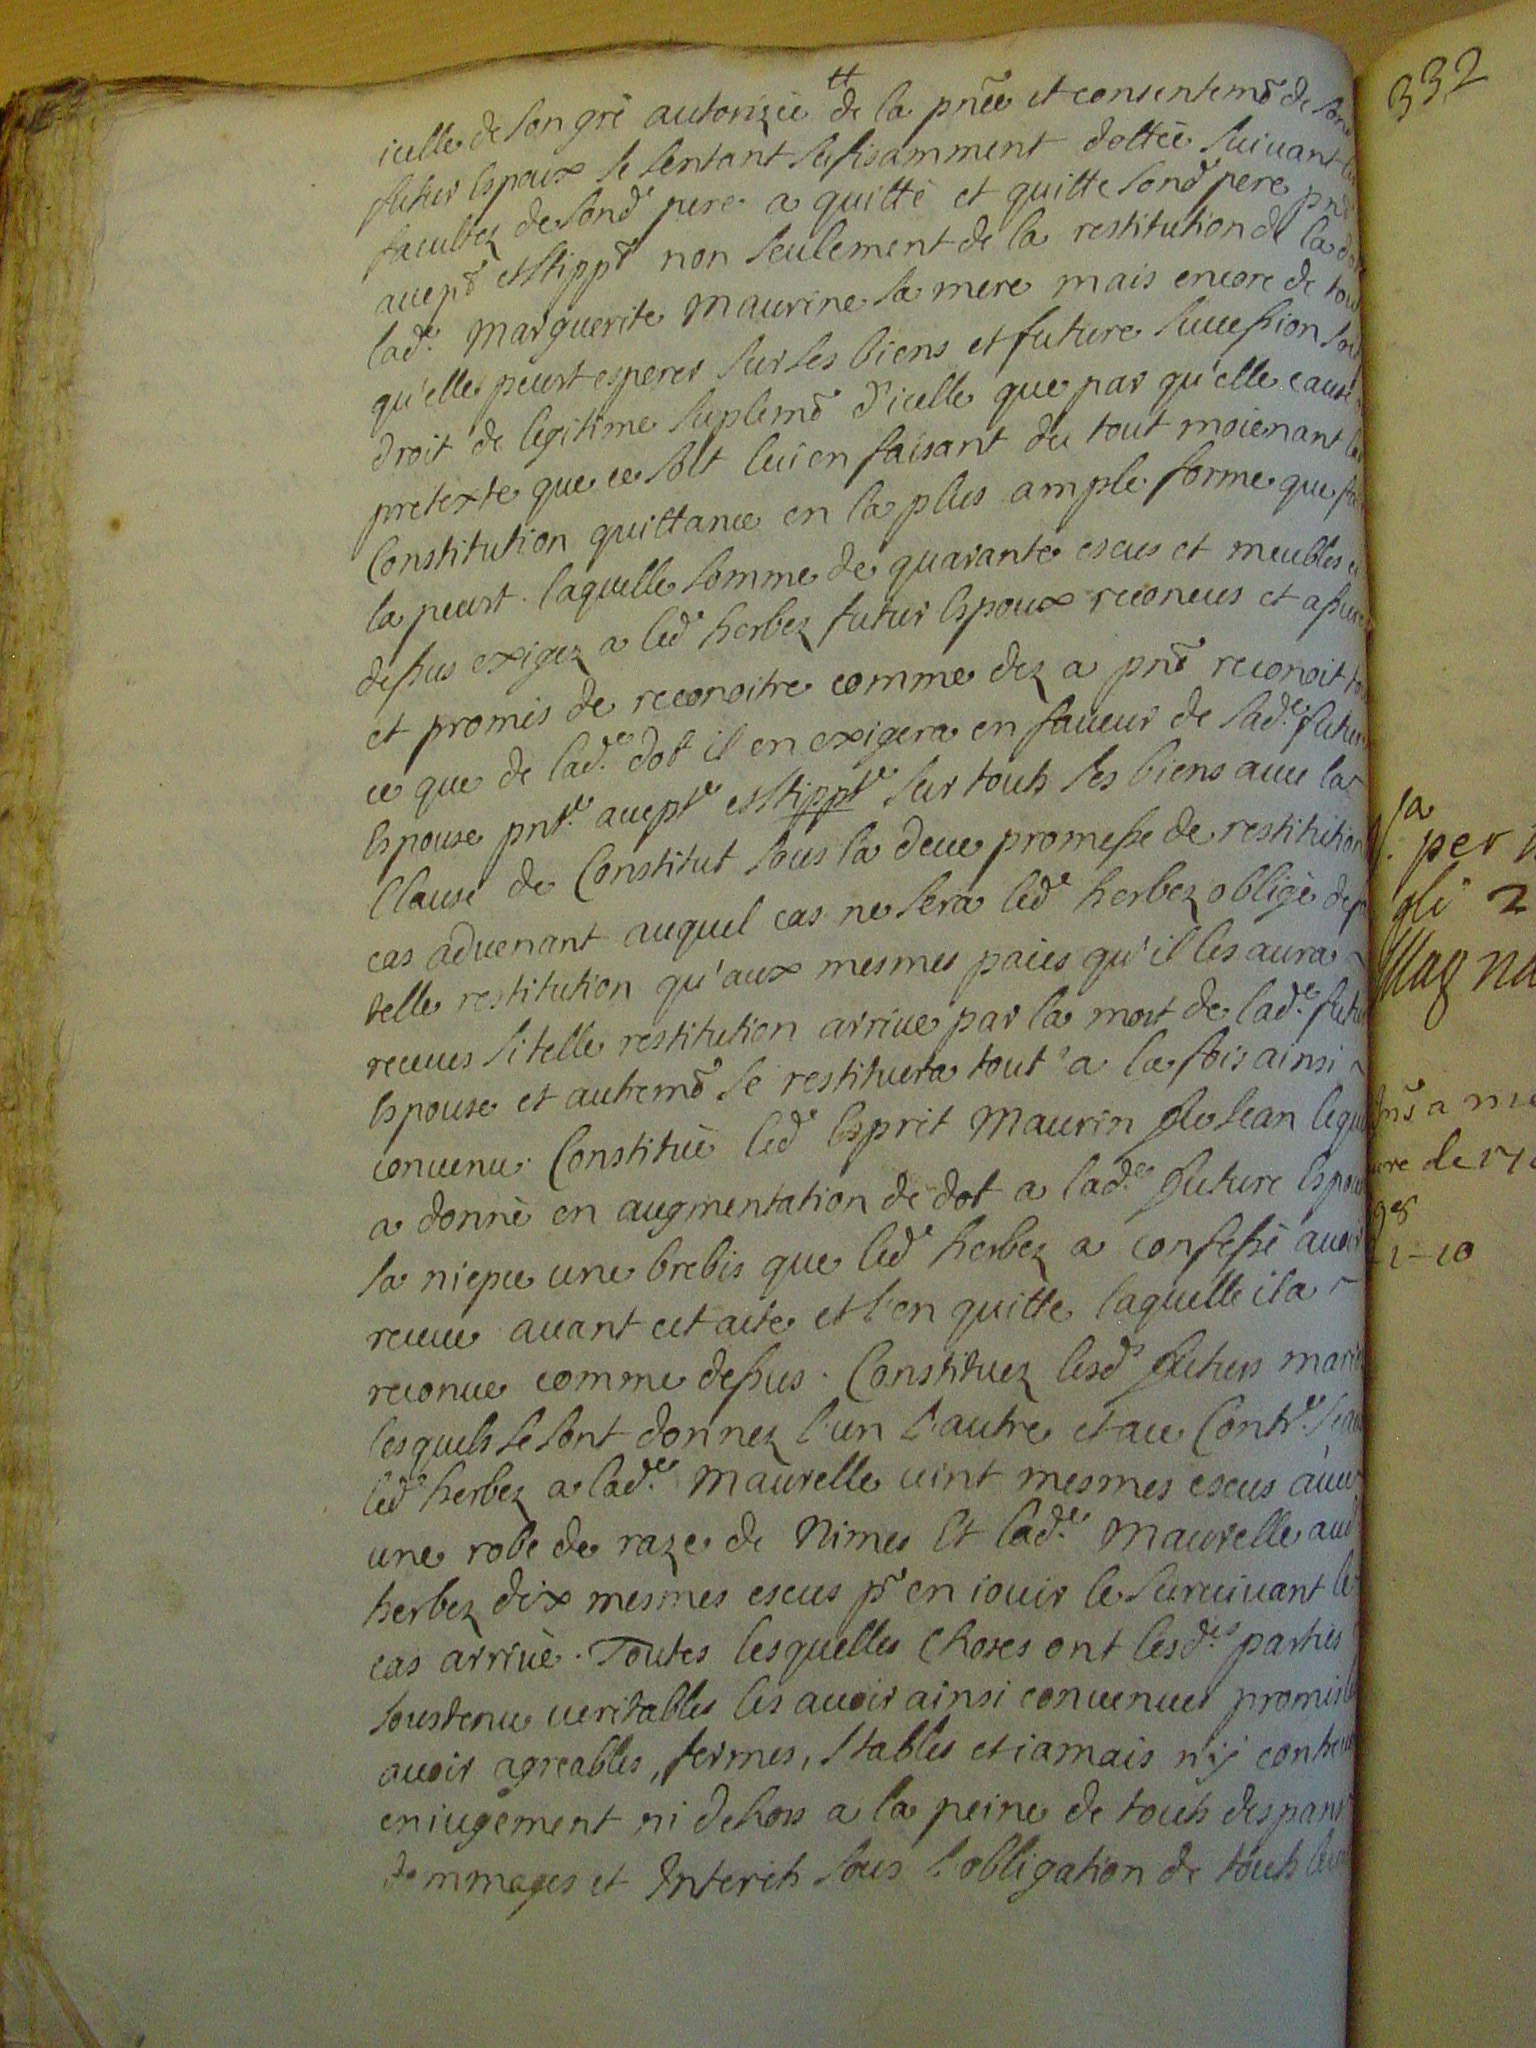 icelle de son gré autorizée tt de la pn̄ce et consentem̄t de son
futur Espoux se sentant sufisamment dottée suivant les
facultez de sond̄ pere a quitté et quitte sond̄ pere pn̄t
accept̄ et stipp̄t non seulement de la restitution de la dot
lad.e Marguerite Maurine sa mere mais encore de tout
qu'elle peust esperer sur ses biens et future succession soit
droit de legitime suplem̄t d'icelle que par qu'elle cause
pretexte que ce soit lui en faisant du tout moienant la
Constitution quittance en la plus ample forme que f
la peust. laquelle somme de quarante escus et meubles ci
dessus exigez a led̄ herbez futur Espoux reconeus et assurez
et promis de reconoitre comme dez a pn̄t reconoit tout
ce que de lad.e dot il en exigera en faveur de sad.e future
Espouse pnt.e accept.e et stippt.e sur touts ses biens avec la
Clause de Constitut sous la deue promesse de restitution
cas advenant auquel cas ne sera led̄ herbez obligé de
telle restitution qu'aux mesmes paies qu'il les aura
receues si telle restitution arrive par la mort de lad.e future
Espouse et autrem̄t se restituera tout a la fois ainsi
convenu. Constitué led̄ Esprit Maurin de Jean lequel
a donné en augmentation de dot a lad.e future Espouse
sa niepce une brebis que led̄ herbez a confessé avoir
receue avant cet acte et l'en quitte laquelle il a
reconue comme dessus. Constituez lesd̄s futurs mariez
lesquels se sont donnez l'un l'autre et au Contr.e sçavoir
led̄ herbez a lad.e Maurelle vint mesmes escus avec
une robe de raze de Nimes Et lad.e Maurelle aud̄
herbez dix mesmes escus p̄r en iouir le survivant le
cas arrivé. Toutes lesquelles Choses ont lesd.es parties
soustenu veritables les avoir ainsi convenues promis les
avoir agreables, fermes, stables et iamais n'ij contrevenir
en iugement ni dehors a la peine de touts despans
dommages et Interets sous l'obligation de touts leurs
332
per
gli 2
Mag na
a me
de 17
1-10